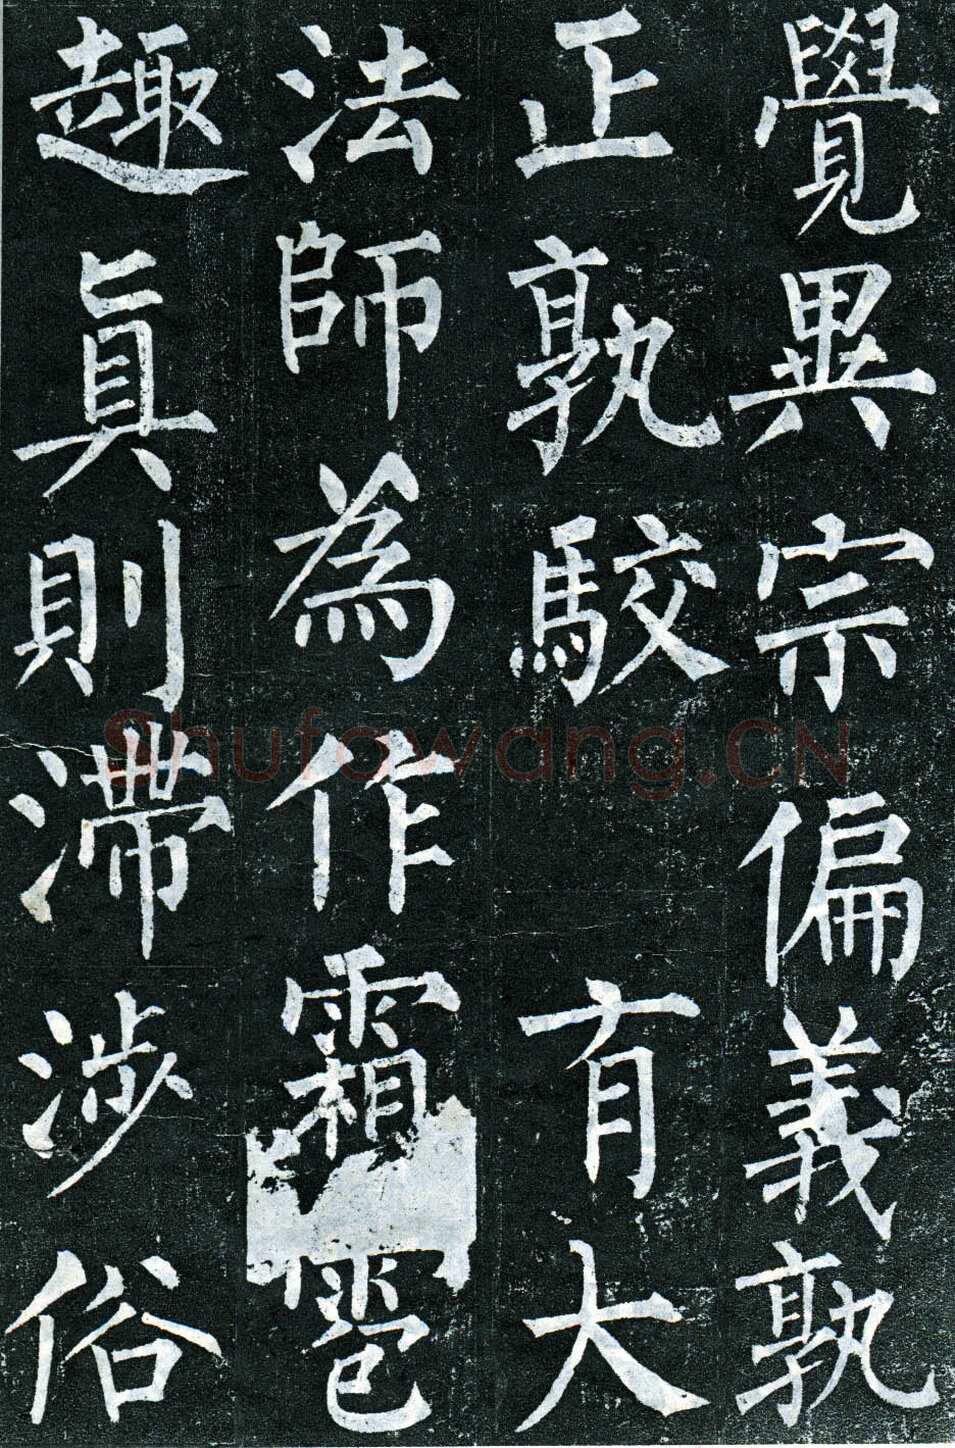 覺異宗偏義孰
正孰駮 有大
法師為作霜雹
趣真則滯涉俗
Shufawang.CN